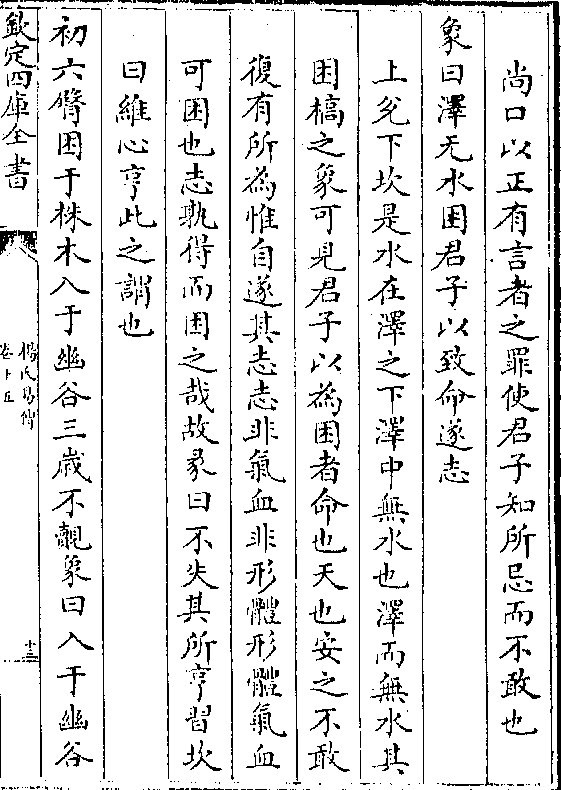 尚口以正有言者之罪使君子知所忌而不敢也
象曰澤无水困君子以致命遂志
上兊下坎是水在澤之下澤中無水也澤而無水其
困槁之象可見君子以為困者命也天也安之不敢
復有所為惟自遂其志志非氣血非形體形體氣血
可困也志孰得而困之哉故彖曰不失其所亨習坎
曰維心亨此之謂也
初六臀困于株木入于幽谷三歳不覿象曰入于幽谷
欽定四庫全書
楊氏易傳
卷十五
十三